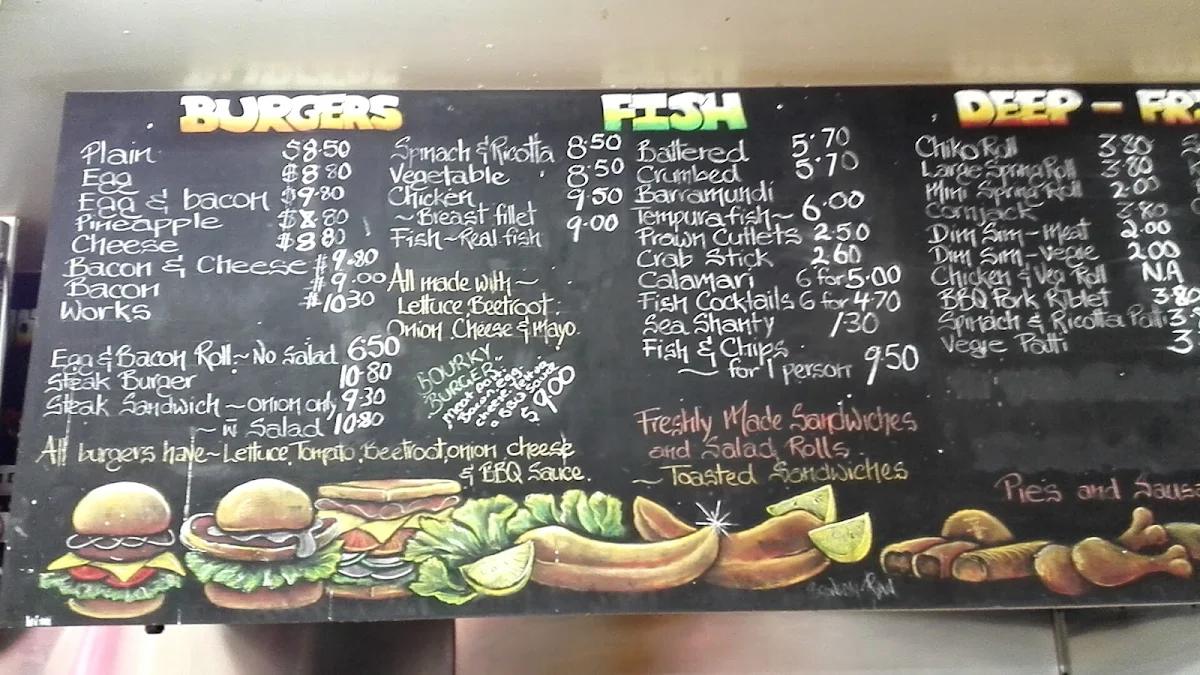 BURGERS
Plain $8.50
Egg $8.80
Egg & bacon $9.80
Pineapple $8.80
Cheese $8.80
Bacon & Cheese $9.80
Bacon 9.00
Works $10.30
Egg & Bacon Roll ~ No Salad 6.50
Steak Burger 10.80
Steak Sandwich ~ onion only 9.30
~ w Salad 10.80
Spinach & Ricotta 8.50
Vegetable 8.50
Chicken 9.50
~ Breast fillet
Fish ~ Real fish 9.00
All made with ~
Lettuce, Beetroot,
Onion, Cheese & Mayo.
BURGER
Bacon, egg,
BBQ sauce
$9.00
All burgers have ~ Lettuce, Tomato, Beetroot, onion cheese
& BBQ Sauce.
FISH
Battered 5.70
Crumbed 5.70
Barramundi
Tempura fish ~ 6.00
Prawn Cutlets 2.50
Crab Stick 2.60
Calamari 6 for 5.00
Fish Cocktails 6 for 4.70
Sea Shanty /30
Fish & Chips
~ for 1 person 9.50
Freshly Made Sandwiches
and Salad Rolls
~ Toasted Sandwiches
DEEP - FR
Chiko Roll 3.80
Large Spring Roll 3.80
Mini Spring Roll 2.00
Cornjack 3.80
Dim Sim - Meat 2.00
Dim Sim - Vegie 2.00
Chicken & Veg Roll NA
BBQ Pork Riblet 3.80
Spinach & Ricotta Patti 3.
Vegie Patti 3.
Pies and Saus